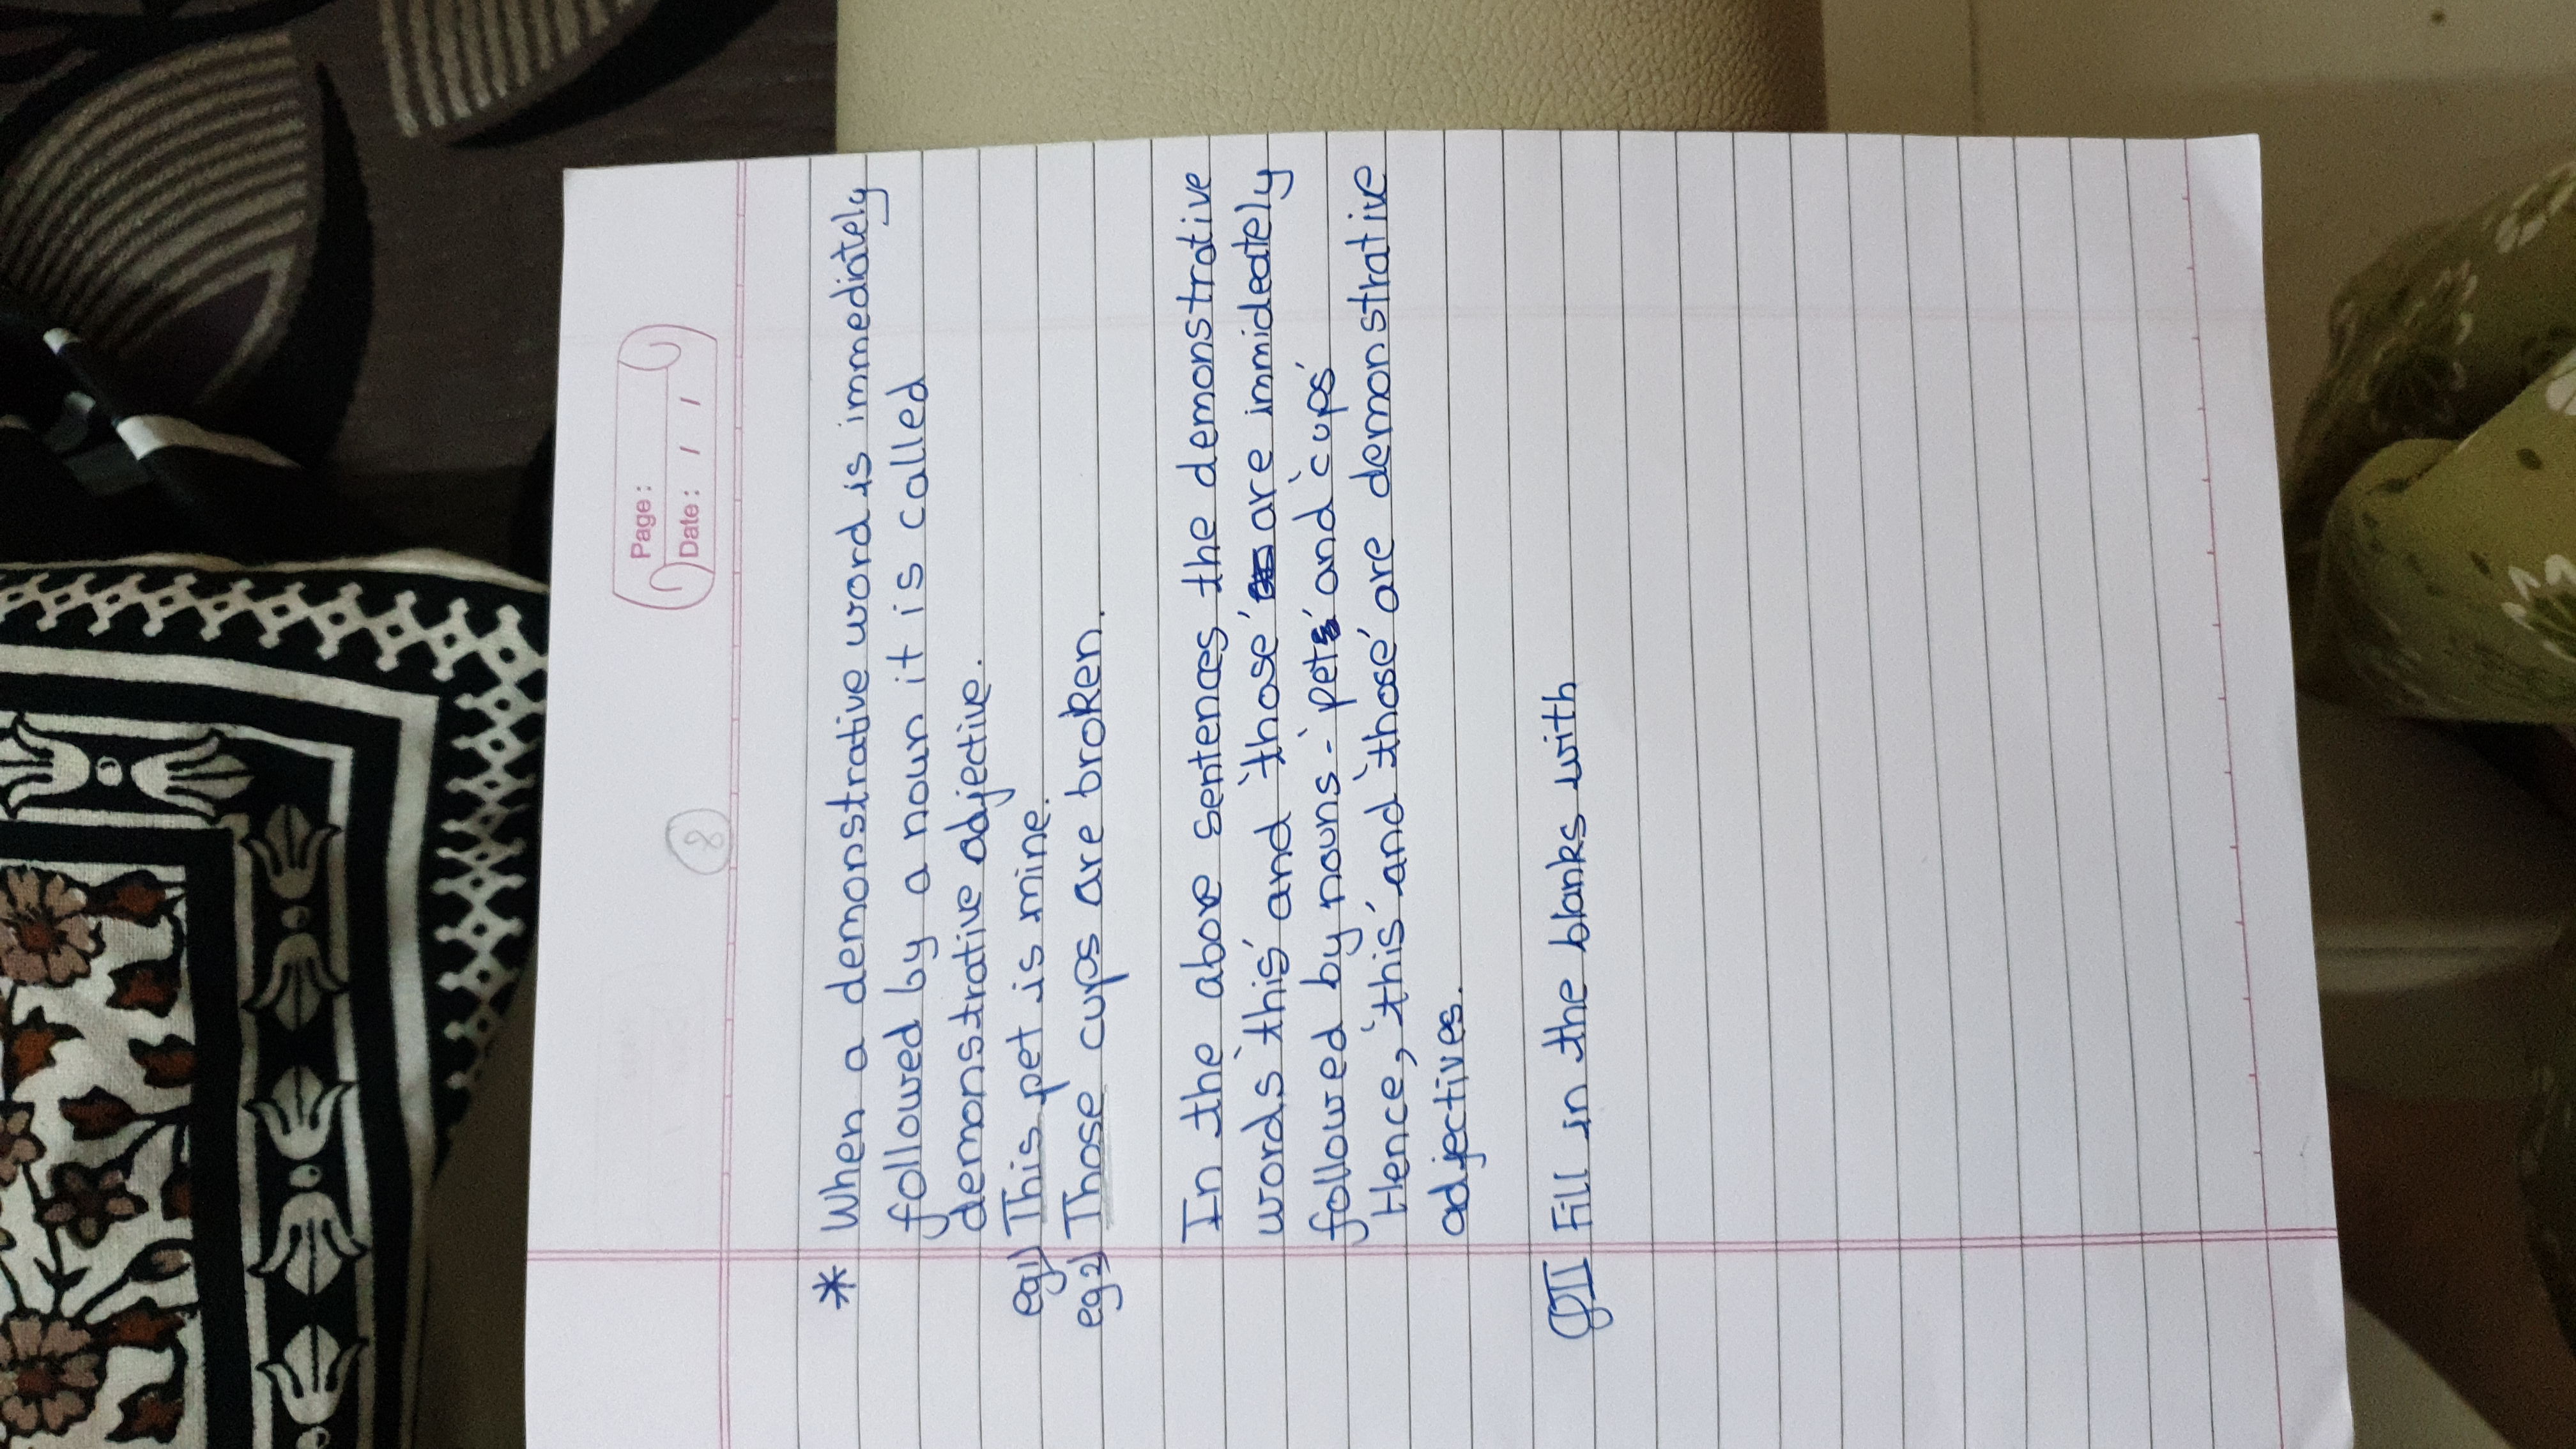 Page :
Date : / /
8
* When a demonstrative word is immediately
followed by a noun it is called
demonstrative adjective.
eg1) This pet is mine.
eg2) Those cups are broken.
In the above sentences the demonstrative
words 'this' and 'those' are immideately
followed by nouns - 'pet' and 'cups'
Hence, 'this' and 'those' are demonstrative
adjectives.
QII Fill in the blanks with